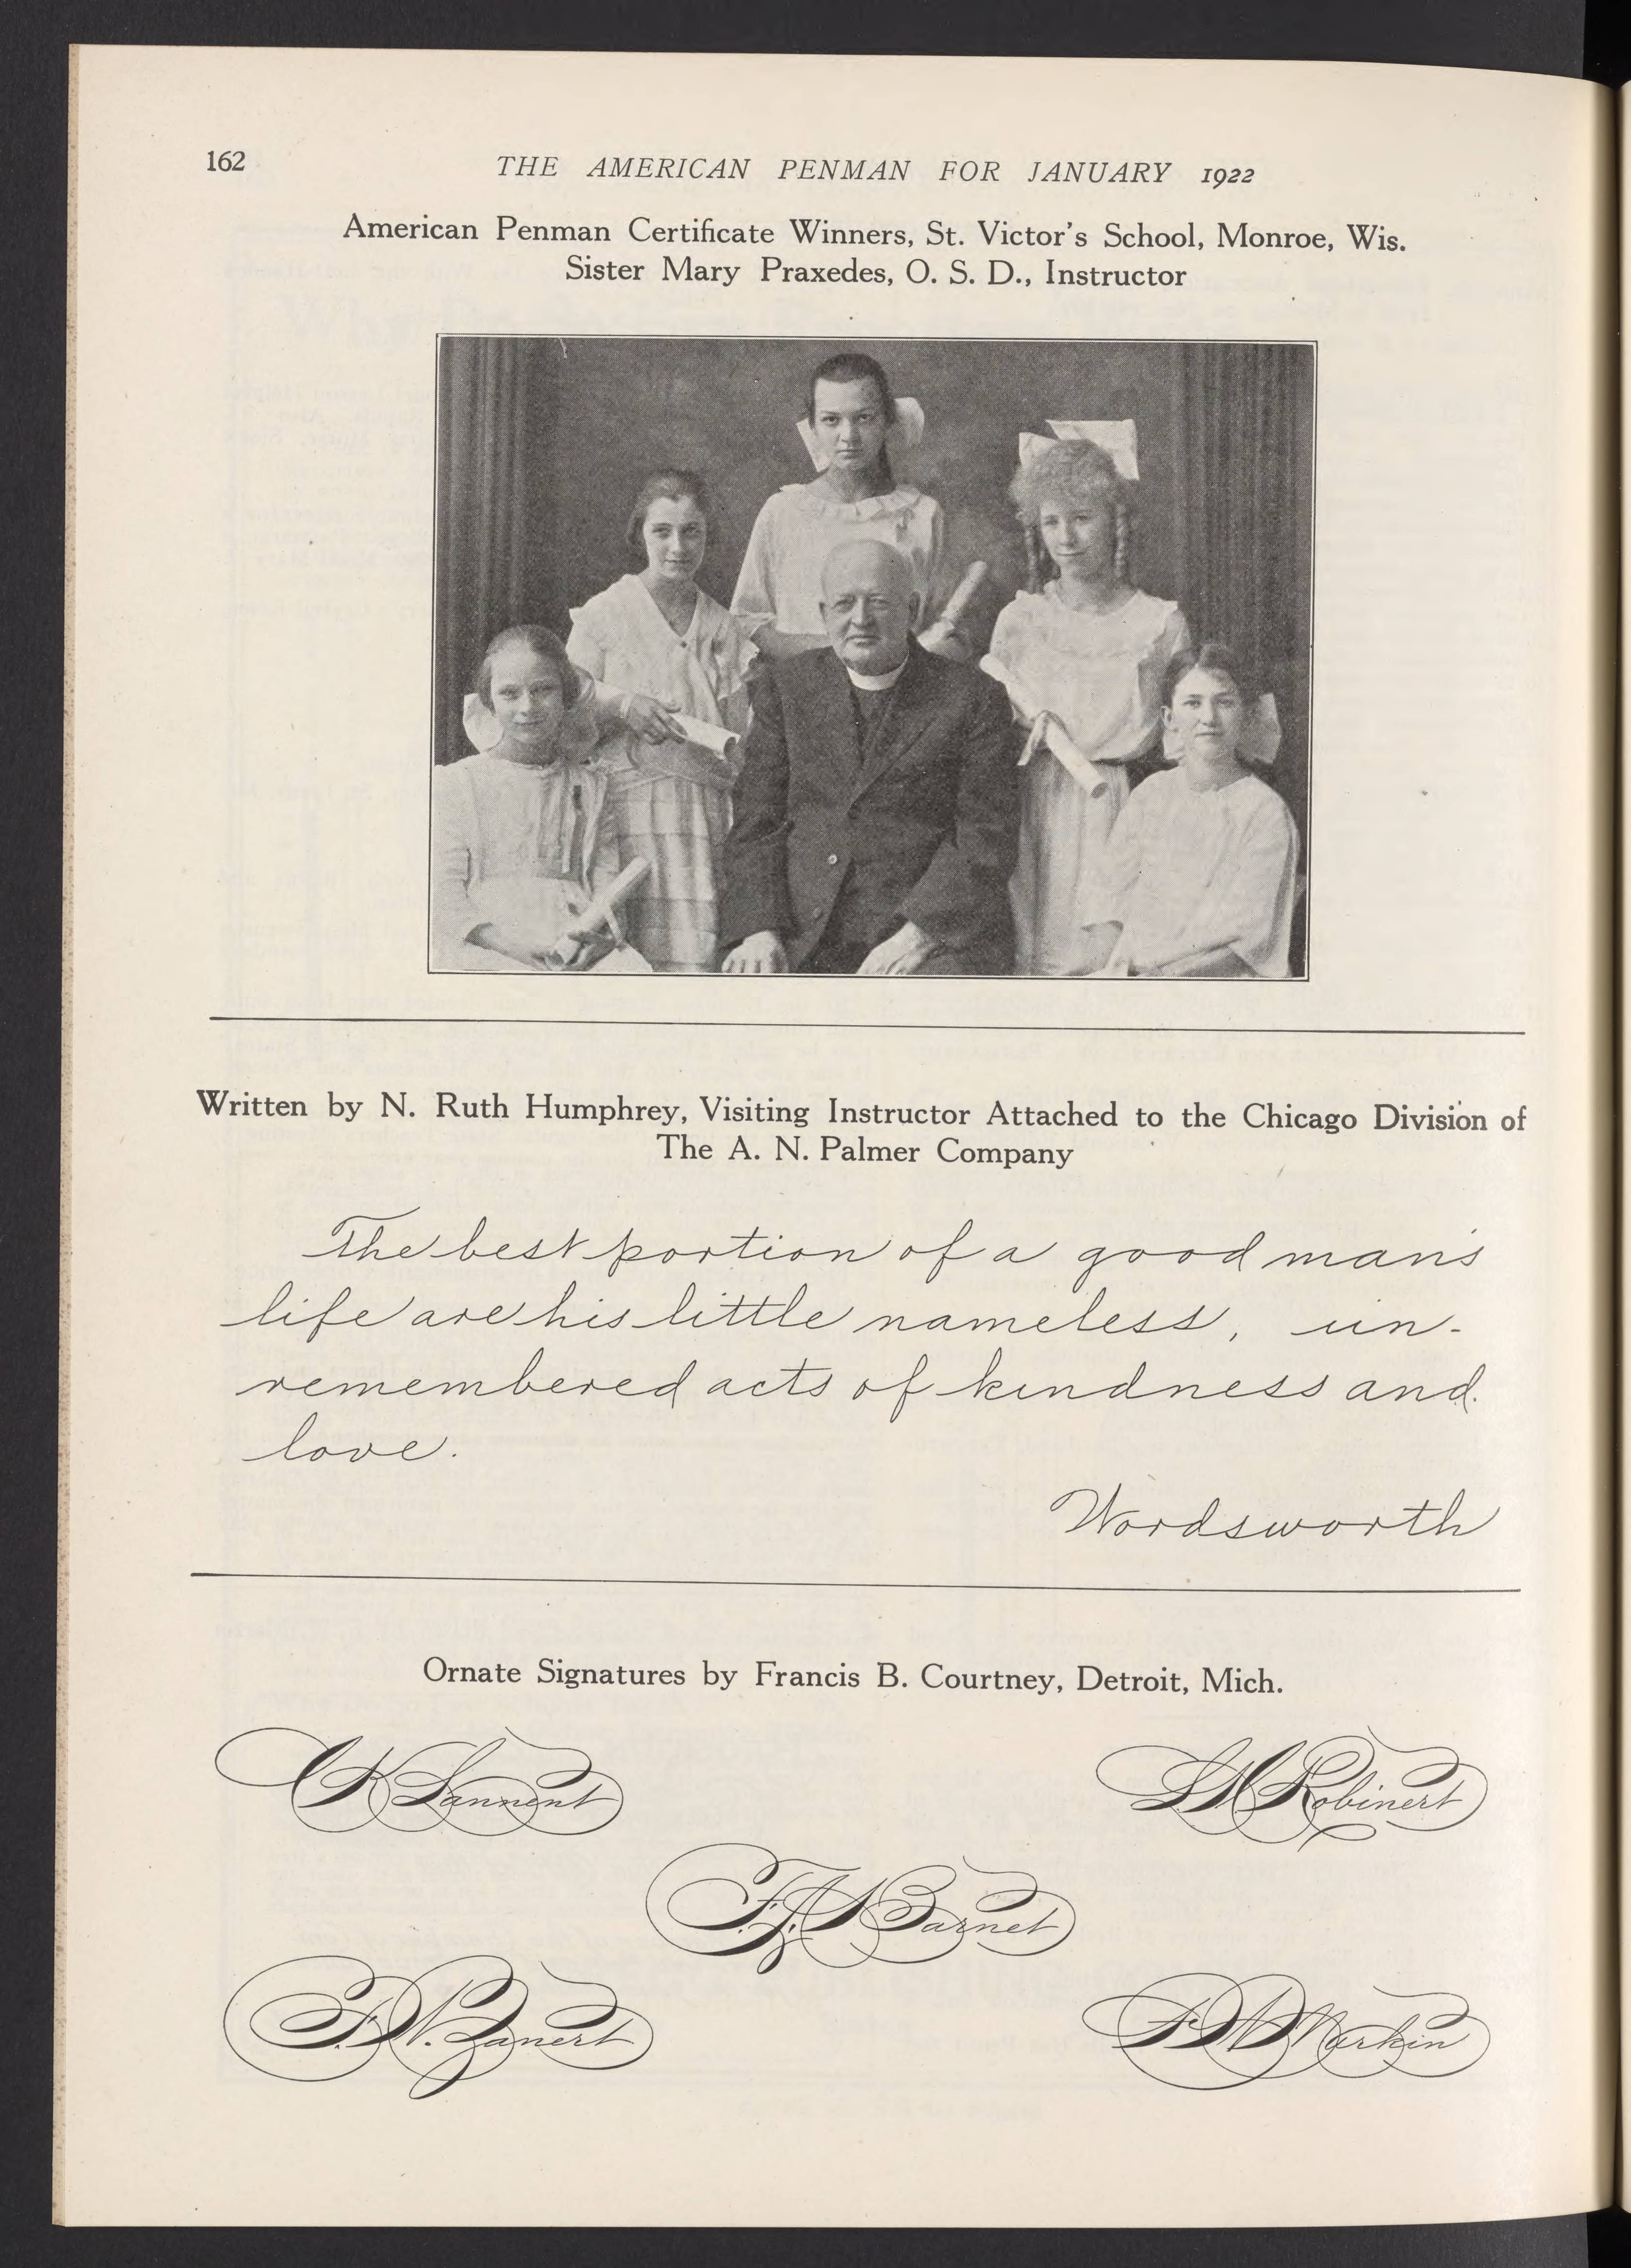 162
THE AMERICAN PENMAN FOR JANUARY 1922
American Penman Certificate Winners, St. Victor's School, Monroe, Wis.
Sister Mary Praxedes, O. S. D., Instructor
Written by N. Ruth Humphrey, Visiting Instructor Attached to the Chicago Division of
The A. N. Palmer Company
The best portion of a good man's
life are his little nameless, un-
remembered acts of kindness and
love.
Wordsworth
Ornate Signatures by Francis B. Courtney, Detroit, Mich.
Lannent
Robinert
Barnet
Zanert
Markin